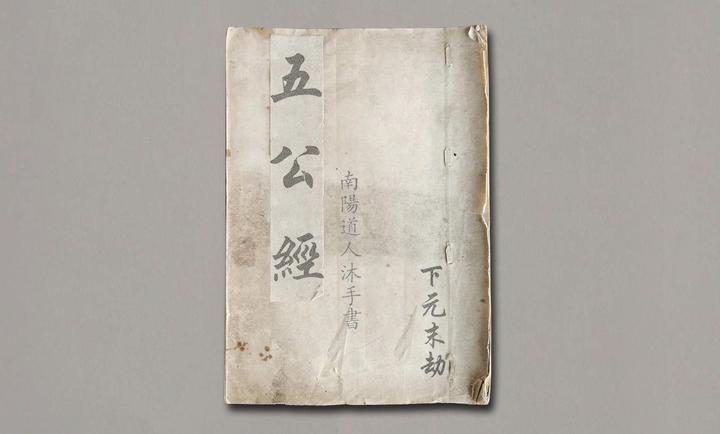 五公經
南陽道人沐手書
下元末劫